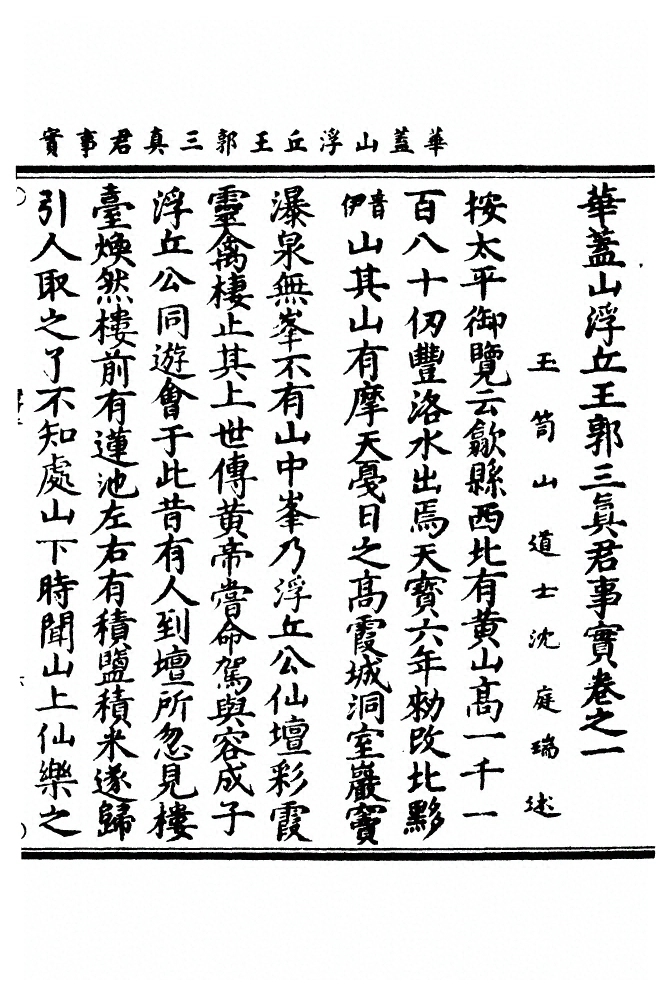 華蓋山浮丘王郭三真君事實
華蓋山浮丘王郭三眞君事實卷之一
玉笥山道士沈庭瑞述
按太平御覽云歙縣西北有黄山高一千一
百八十仞豐洛水出焉天寶六年勑改北黟
音伊山其山有摩天戞日之高霞城洞室巖竇
瀑泉無峯不有山中峯乃浮丘公仙壇彩霞
靈禽棲止其上世傳黄帝嘗命駕與容成子
浮丘公同遊會于此昔有人到壇所忽見樓
臺煥然樓前有蓮池左右有積鹽積米遂歸
引人取之了不知處山下時聞山上仙樂之